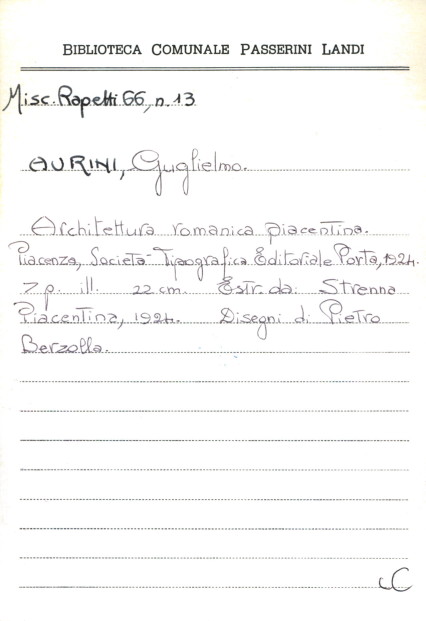 BIBLIOTECA COMUNALE PASSERINI LANDI
Misc. Rapetti 66, n. 13
AURINI, Guglielmo.
Architettura romanica piacentina.
Piacenza, Società Tipografica Editoriale Porta, 1924.
7 p. ill. 22 cm. Estr. da: Strenna
Piacentina, 1924. Disegni di Pietro
Berzolla.